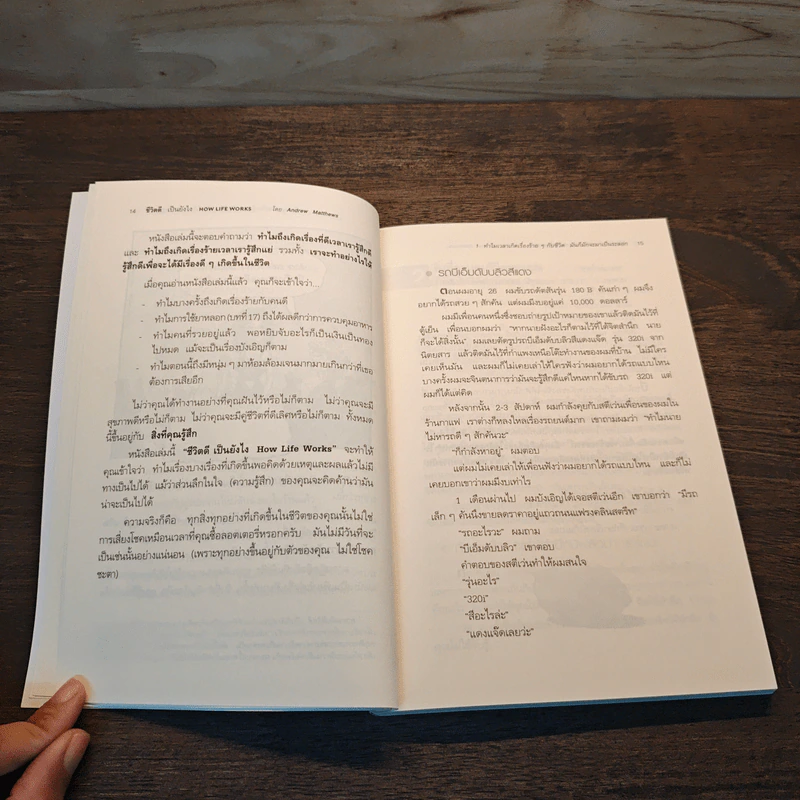 14 ชีวิตดี เป็นยังไง HOW LIFE WORKS โดย Andrew Matthews
หนังสือเล่มนี้จะตอบคำถามว่า ทำไมถึงเกิดเรื่องที่ดีเวลาเรารู้สึกดี
และ ทำไมถึงเกิดเรื่องร้ายเวลาเรารู้สึกแย่ รวมทั้ง เราจะทำอย่างไรให้
รู้สึกดีเพื่อจะได้มีเรื่องดี ๆ เกิดขึ้นในชีวิต
เมื่อคุณอ่านหนังสือเล่มนี้แล้ว คุณก็จะเข้าใจว่า...
- ทำไมบางครั้งถึงเกิดเรื่องร้ายกับคนดี
- ทำไมการใช้ยาหลอก (บทที่ 17) ถึงได้ผลดีกว่าการควบคุมอาหาร
- ทำไมคนที่รวยอยู่แล้ว พอหยิบจับอะไรก็เป็นเงินเป็นทอง
ไปหมด แม้จะเป็นเรื่องบังเอิญก็ตาม
- ทำไมตอนนี้ถึงมีหนุ่ม ๆ มาห้อมล้อมเจนมากมายเกินกว่าที่เธอ
ต้องการเสียอีก
ไม่ว่าคุณจะได้ทำงานอย่างที่คุณฝันไว้หรือไม่ก็ตาม ไม่ว่าคุณจะมี
สุขภาพดีหรือไม่ก็ตาม ไม่ว่าคุณจะมีคู่ชีวิตที่ดีเลิศหรือไม่ก็ตาม ทั้งหมด
นี้ขึ้นอยู่กับ สิ่งที่คุณรู้สึก
หนังสือเล่มนี้ "ชีวิตดี เป็นยังไง How Life Works" จะทำให้
คุณเข้าใจว่า ทำไมเรื่องบางเรื่องที่เกิดขึ้นพอคิดด้วยเหตุและผลแล้วไม่มี
ทางเป็นไปได้ แม้ว่าส่วนลึกในใจ (ความรู้สึก) ของคุณจะคิดค้านว่ามัน
น่าจะเป็นไปได้
ความจริงก็คือ ทุกสิ่งทุกอย่างที่เกิดขึ้นในชีวิตของคุณนั้นไม่ใช่
การเสี่ยงโชคเหมือนเวลาที่คุณซื้อลอตเตอรี่หรอกครับ มันไม่มีวันที่จะ
เป็นเช่นนั้นอย่างแน่นอน (เพราะทุกอย่างขึ้นอยู่กับตัวของคุณ ไม่ใช่โชค
ชะตา)
1- ทำไมเวลาเกิดเรื่องร้าย ๆ กับชีวิต มันก็มักจะมาเป็นระลอก 15
รถบีเอ็มดับบลิวสีแดง
ตอนผมอายุ 26 ผมขับรถดัตสันรุ่น 180 B คันเก่า ๆ ผมจึง
อยากได้รถสวย ๆ สักคัน แต่ผมมีงบอยู่แค่ 10,000 ดอลลาร์
ผมมีเพื่อนคนหนึ่งซึ่งชอบถ่ายรูปเป้าหมายของเขาแล้วติดมันไว้ที่
ตู้เย็น เพื่อนบอกผมว่า "หากนายฝังอะไรก็ตามไว้ที่ใต้จิตสำนึก นาย
ก็จะได้สิ่งนั้น" ผมเลยตัดรูปรถบีเอ็มดับบลิวสีแดงแจ๊ด รุ่น 320i จาก
นิตยสาร แล้วติดมันไว้ที่กำแพงเหนือโต๊ะทำงานของผมที่บ้าน ไม่มีใคร
เคยเห็นมัน และผมก็ไม่เคยเล่าให้ใครฟังว่าผมอยากได้รถแบบไหน
บางครั้งผมจะจินตนาการว่ามันจะรู้สึกดีแค่ไหนหากได้ขับรถ 320i แต่
ผมก็ได้แต่คิด
หลังจากนั้น 2-3 สัปดาห์ ผมกำลังคุยกับสตีเว่นเพื่อนของผมใน
ร้านกาแฟ เราต่างก็หลงใหลเรื่องรถยนต์มาก เขาถามผมว่า "ทำไมนาย
ไม่หารถดี ๆ สักคันวะ"
"ก็กำลังหาอยู่" ผมตอบ
แต่ผมไม่เคยเล่าให้เพื่อนฟังว่าผมอยากได้รถแบบไหน และก็ไม่
เคยบอกเขาว่าผมมีงบเท่าไร
1 เดือนผ่านไป ผมบังเอิญได้เจอสตีเว่นอีก เขาบอกว่า "มีรถ
เล็ก ๆ คันนึงขายลดราคาอยู่แถวถนนแฟรงคลินสตรีท"
"รถอะไรวะ" ผมถาม
"บีเอ็มดับบลิว" เขาตอบ
คำตอบของสตีเว่นทำให้ผมสนใจ
"รุ่นอะไร"
"320i"
"สีอะไรล่ะ"
"แดงแจ๊ดเลยว่ะ"